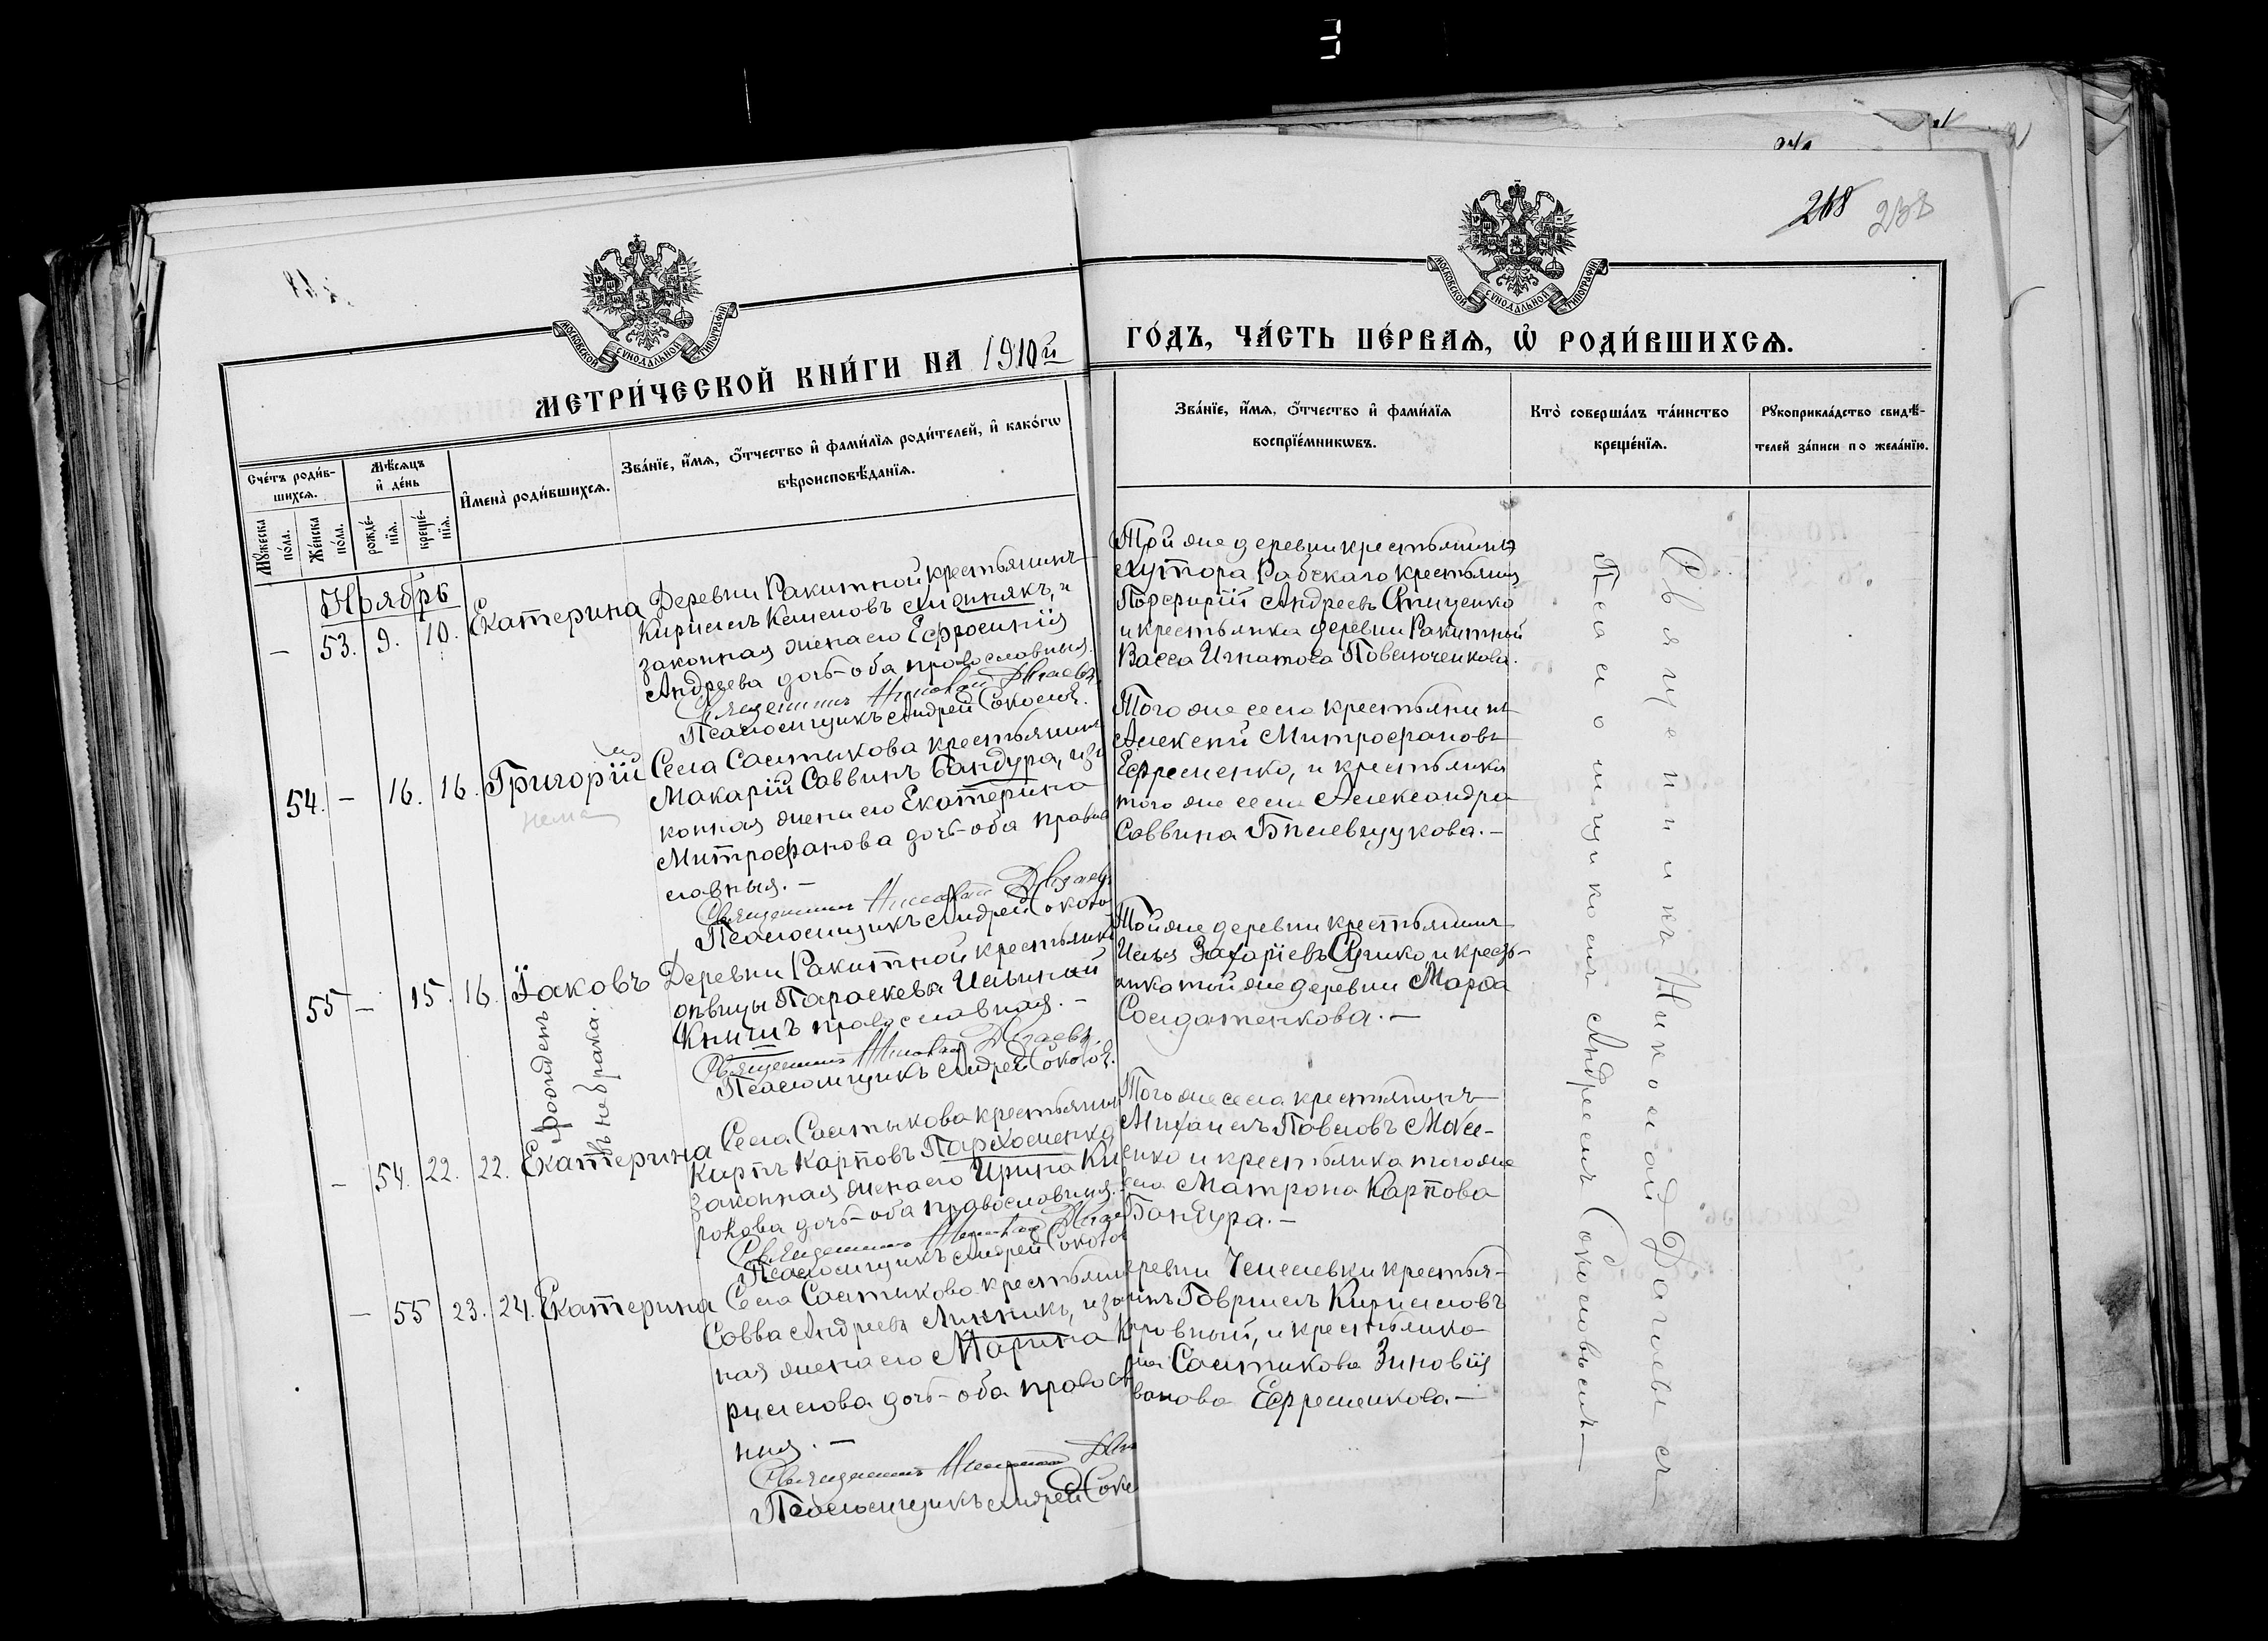 268 238
МОСКОВСКОЙ СУНОДАЛЬНОЙ ТИПОГРАФІИ
МОСКОВСКОЙ СУНОДАЛЬНОЙ ТИПОГРАФІИ
МЕТРИ́ЧЕСКОЙ КНИ́ГИ НА 1910й
ГО́ДЪ, ЧА́СТЬ ПЕ́РВАѦ, Ѡ҆ РОДИ́ВШИХСѦ.
Сче́тъ роди́в-
шихсѧ.
Мꙋ́жеска
по́ла.
Же́нска
по́ла.
Мѣ́сѧцъ
и҆ де́нь
рожде́-
нїѧ.
креще́-
нїѧ.
И҆мена̀ роди́вшихсѧ.
Зва́нїе, и҆́мѧ, ѻ҆́тчество и҆ фами́лїѧ роди́телей, и҆ како́гѡ
вѣроисповѣ́данїѧ.
Зва́нїе, и҆́мѧ, ѻ҆́тчество и҆ фами́лїѧ
воспрїе́мникѡвъ.
Кто̀ соверша́лъ та́инство
креще́нїѧ.
Рꙋкоприкла́дство свидѣ́-
телей за́писи по жела́нїю.
Ноябрь
— 53. 9. 10. Екатерина
Деревни Ракитной крестьянинъ
Кириллъ Климовъ
законная жена его Ефросинія
Андреева дочь-оба православныя.
Священникъ Николай
Псаломщикъ Андрей Соколовъ.
Той же деревни крестьянинъ
хутора Рабскаго крестьянинъ
Порфирій Андреевъ Стиценко
и крестьянка деревни Ракитной
Васса Игнатова
54. — 16. 16. Григорій
Села Салтыкова крестьянинъ
Макарій Саввинъ Бандура, и за
конная жена его Екатерина
Митрофанова дочь-оба право
славныя. —
Священникъ Николай
Псаломщикъ Андрей Соколо
Того же села крестьянинъ
Алексѣй Митрофановъ
Ефременко, и крестьянка
того же села Александра
Саввина
55 — 15. 16. Іаковъ
рожденъ
внѣ брака.
Деревни Ракитной крестьянки
дѣвицы Параскева Ильиной
Книшъ православная. —
Священникъ Николай
Псаломщикъ Андрей Соколов.
Той же деревни крестьянинъ
Илья Захаріевъ и кресть-
янка той же деревни Марфа
Солдатенкова. —
— 54. 22. 22. Екатерина
Села Салтыкова крестьянин
Карпъ Карповъ Пархоменко
законная жена его Ирина Ки
рокова дочь-оба православныя.
Священникъ Николай
Псаломщикъ Андрей Соколо
Того же села крестьянинъ
Михаилъ Павловъ
енко и крестьянка того же
ела Матрона Карпова
Бандура. —
— 55 23. 24. Екатерина
Села Салтыкова крестьянин
Савва Андреевъ Линникъ, и зако
ная жена его Марина К
риллова дочь-оба правосл
ныя. —
Священникъ Николай
Псаломщикъ Андрей Соко
еревни крестья-
инъ Гавриилъ Кирилловъ
и крестьянка
Салтикова Зиновія
ванова Ефременкова. —
Священникъ Николай
Псаломщикомъ Андреемъ Соколовымъ —